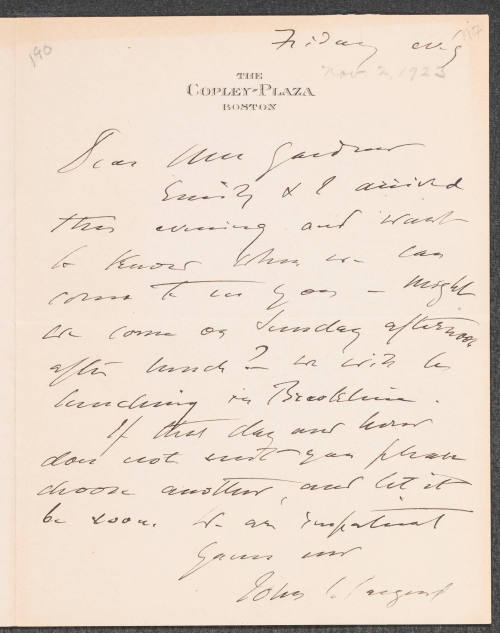 190
117
Friday evg
Nov. 2, 1923
THE
COPLEY-PLAZA
BOSTON
Dear Mrs Gardner
Emily & I arrived
this evening and want
to know when we can
come to see you – might
we come on Sunday afternoon
after lunch? – we will be
lunching in Brookline.
If that day and hour
does not suit you please
choose another, and let it
be soon. We are impatient
Yours ever
John S. Sargent